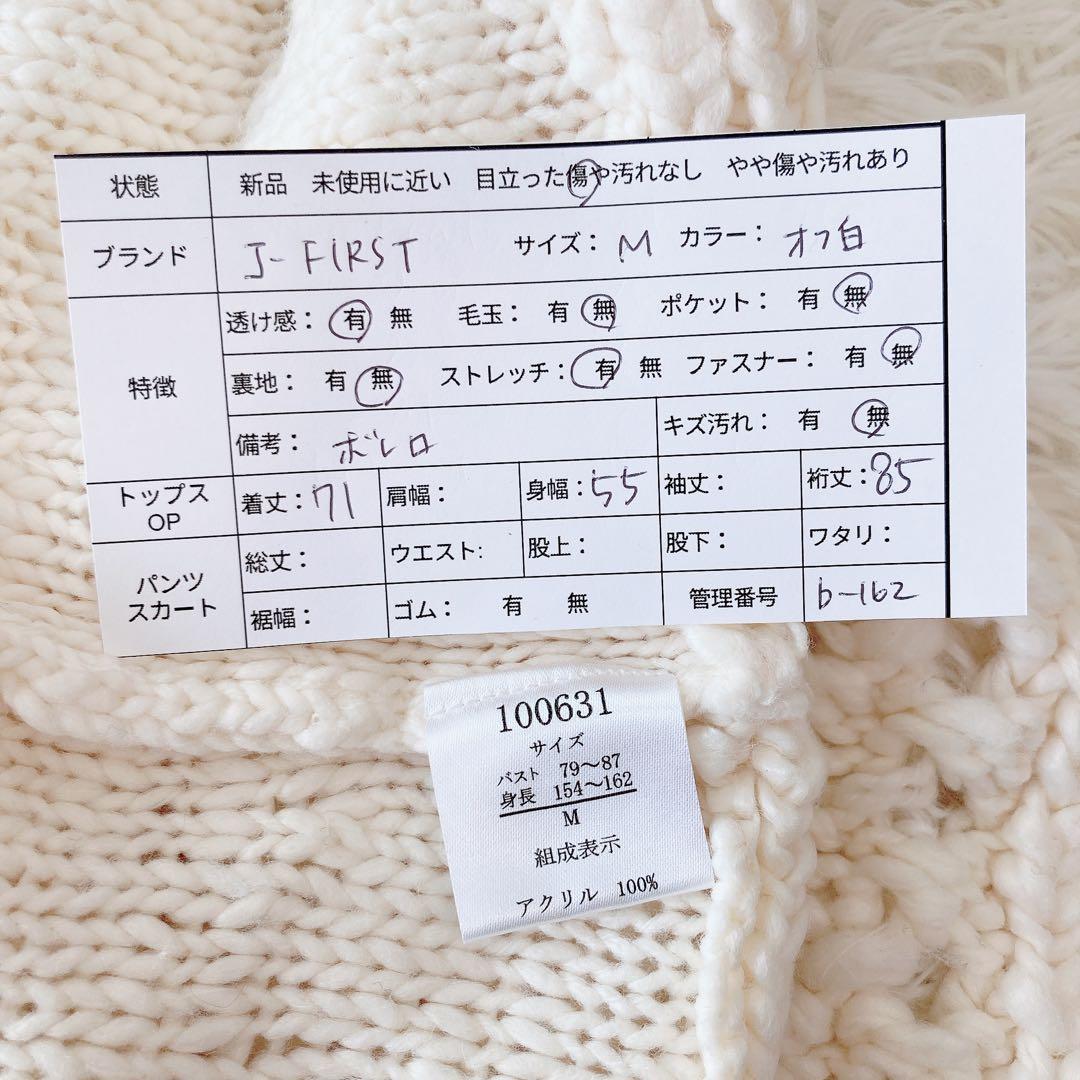 状態 新品 未使用に近い 目立った傷や汚れなし やや傷や汚れあり
ブランド J-FIRST サイズ： M カラー： オフ白
特徴
透け感： 有 無 毛玉： 有 無 ポケット： 有 無
裏地： 有 無 ストレッチ： 有 無 ファスナー： 有 無
備考： ボレロ キズ汚れ： 有 無
トップス
OP
着丈：71 肩幅： 身幅：55 袖丈： 裄丈：85
パンツ
スカート
総丈： ウエスト: 股上： 股下： ワタリ：
裾幅： ゴム： 有 無 管理番号 b-162
100631
サイズ
バスト 79〜87
身長 154〜162
M
組成表示
アクリル 100%